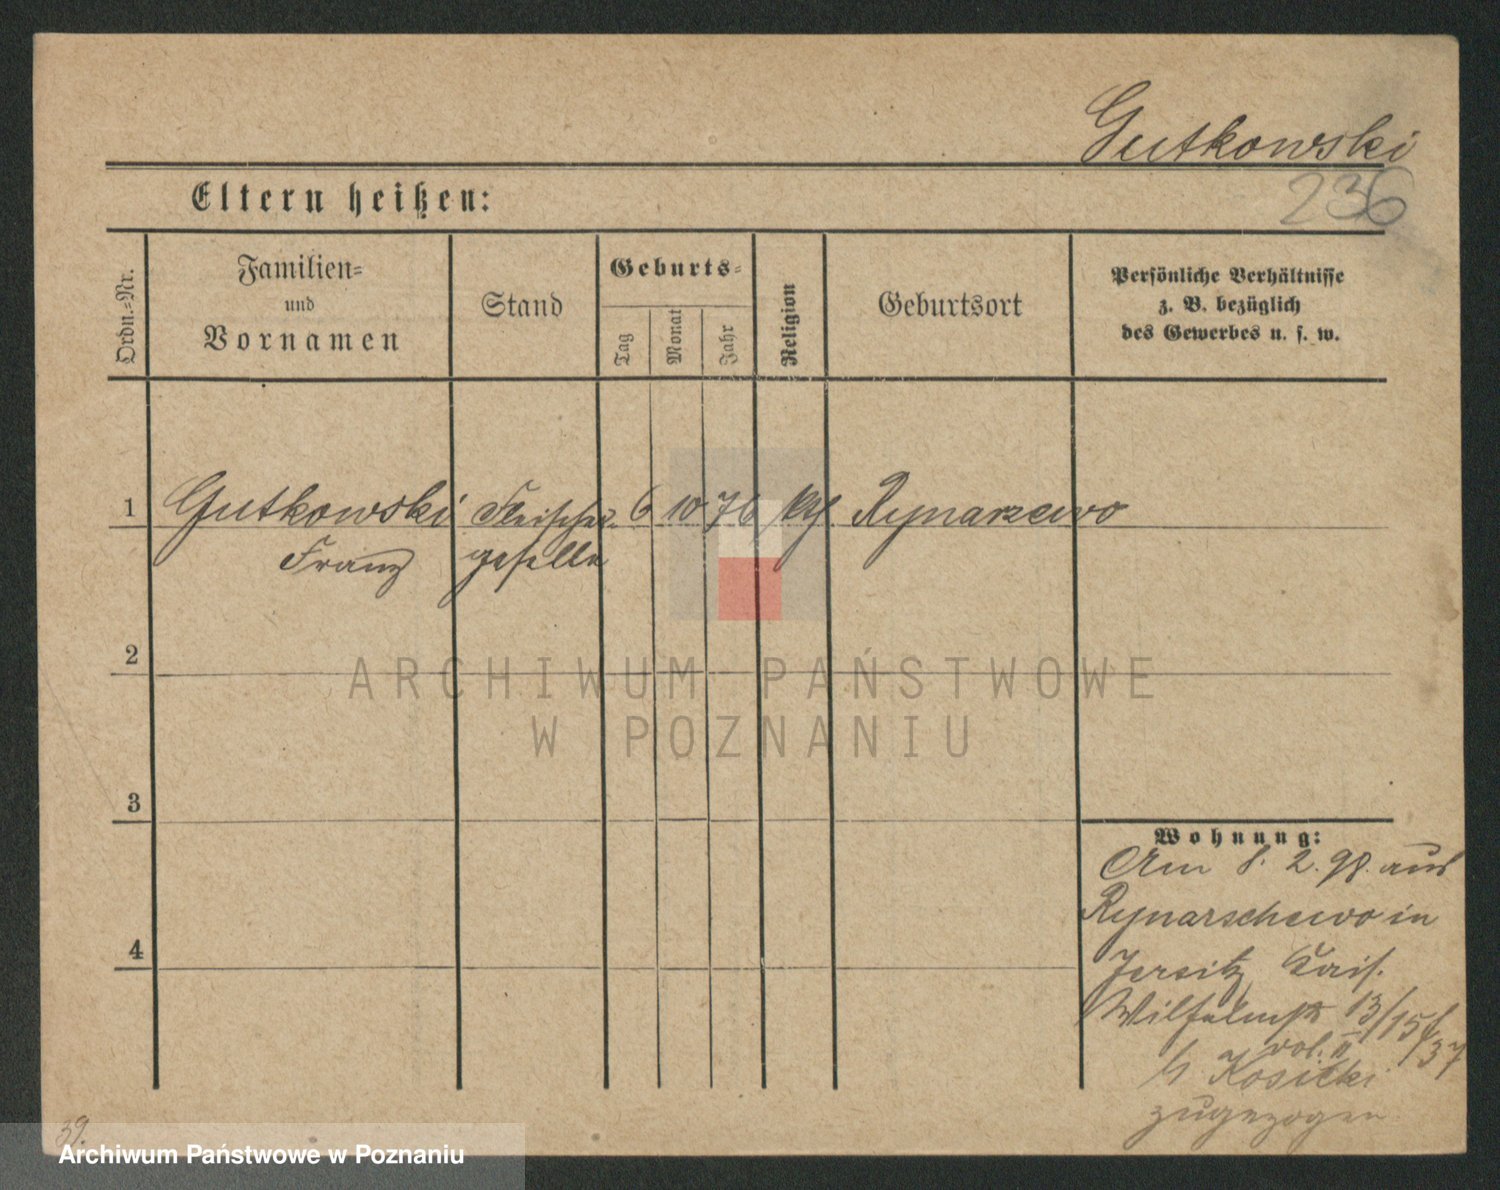 Gutkowski
236
Eltern heißen:
Ordn.=Nr.
Familien=
und
Vornamen
Stand
Geburts=
Tag
Monat
Jahr
Religion
Geburtsort
Persönliche Verhältnisse
z. B. bezüglich
des Gewerbes u. s. w.
1 Gutkowski Fleischer- 6 10 76 kth Rynarzewo
Franz geselle
2
3
4
Wohnung:
Am 8. 2. 98. aus
Rynarschewo in
Jersitz Kais.
Wilhelmstr 13/15/37
vol. II
b Kosicki
zugezogen
39.
ARCHIWUM PAŃSTWOWE
W POZNANIU
Archiwum Państwowe w Poznaniu